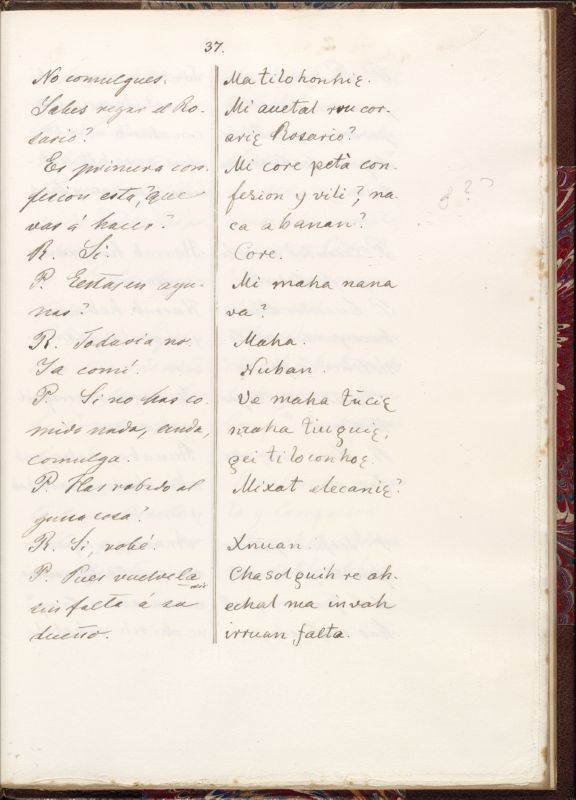 37.
No comulgues.
Sabes rezar el Ro-
sario?
Es primera con-
fesion esta, que
vas á hacer?
R. Si.
P. Eestas en ayu-
nas?
R. Todavia no.
Ya comí.
P. Si no has co-
mido nada, anda,
comulga.
P. Has robado al
guna cosa?
R. Si, robé.
P. Pues vuelvela
sin falta á su
dueño.
Ma tilohonhię.
Mi auetal ruu cor-
arię Rosario?
Mi core petà con-
fesion y vili?, na-
ca abanan?
Core.
Mi maha nana
va?
Maha.
Nuban.
Ve maha tucię
maha tiuguię,
gei tiloconhoę.
Mixat elecanię?
Xnuan.
Chasolguih re ah-
echal ma invah
irruan falta.
?